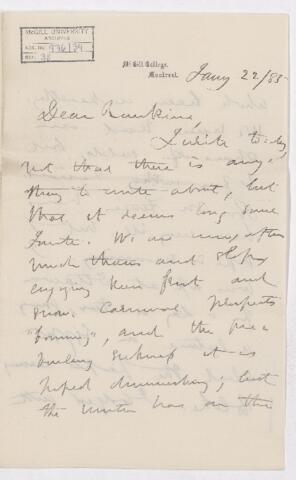 McGILL UNIVERSITY
ARCHIVES
ACC. NO. 996/34
REF. 38
McGill College,
Montreal. Jany 22/85
Dear Rankine,
I write to-day
not that there is any-
thing to write about, but
that it seems long since
I wrote. We are now after
much thaw and
enjoying keen frost and
snow. Carnival prospects
"booming", and the
sickness it is
hoped diminishing; but
the winter has on the